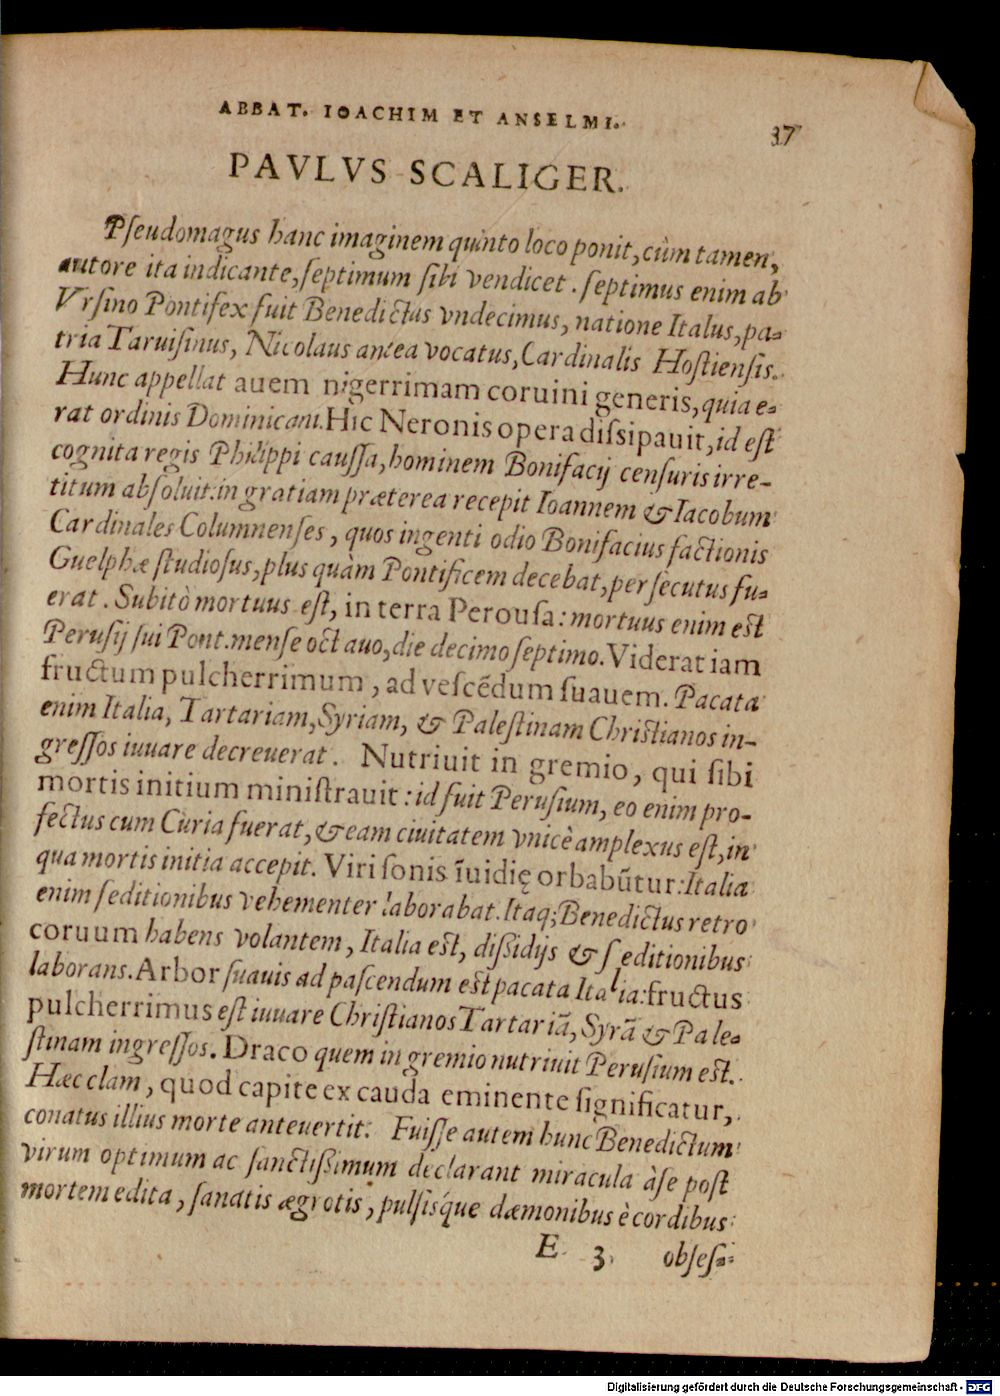 ABBAT. IOACHIM ET ANSELMI.
37
PAVLVS SCALIGER.
Pſeudomagus hanc imaginem quinto loco ponit, cùm tamen,
autore ita indicante, ſeptimum ſibi vendicet. ſeptimus enim ab
Vrſino Pontifex fuit Benedictus vndecimus, natione Italus, pa-
tria Taruiſinus, Nicolaus antea vocatus, Cardinalis Hoſtienſis.
Hunc appellat auem nigerrimam coruini generis, quia e-
rat ordinis Dominicani. Hic Neronis opera diſsipauit, id eſt
cognita regis Philippi cauſſa, hominem Bonifacij cenſuris irre-
titum abſoluit: in gratiam præterea recepit Ioannem & Iacobum
Cardinales Columnenſes, quos ingenti odio Bonifacius factionis
Guelphæ ſtudioſus, plus quàm Pontificem decebat, perſecutus fu-
erat. Subitò mortuus eſt, in terra Perouſa: mortuus enim eſt
Peruſij ſui Pont. menſe octauo, die decimo ſeptimo. Viderat iam
fructum pulcherrimum, ad veſcēdum ſuauem. Pacata
enim Italia, Tartariam, Syriam, & Paleſtinam Chriſtianos in-
greſſos iuuare decreuerat. Nutriuit in gremio, qui ſibi
mortis initium miniſtrauit: id fuit Peruſium, eo enim pro-
fectus cum Curia fuerat, & eam ciuitatem vnicè amplexus eſt, in
qua mortis initia accepit. Viri ſonis īuidię orbabūtur: Italia
enim ſeditionibus vehementer laborabat. Itaq; Benedictus retro
coruum habens volantem, Italia eſt, diſsidijs & ſeditionibus
laborans. Arbor ſuauis ad paſcendum eſt pacata Italia: fructus
pulcherrimus eſt iuuare Chriſtianos Tartariā, Syrā & Pale-
ſtinam ingreſſos. Draco quem in gremio nutriuit Peruſium eſt.
Hæc clam, quod capite ex cauda eminente ſignificatur,
conatus illius morte anteuertit. Fuiſſe autem hunc Benedictum
virum optimum ac ſanctiſsimum declarant miracula à ſe poſt
mortem edita, ſanatis ægrotis, pulſisq́ue dæmonibus è cordibus
E 3 obſeſ-
Digitalisierung gefördert durch die Deutsche Forschungsgemeinschaft - DFG